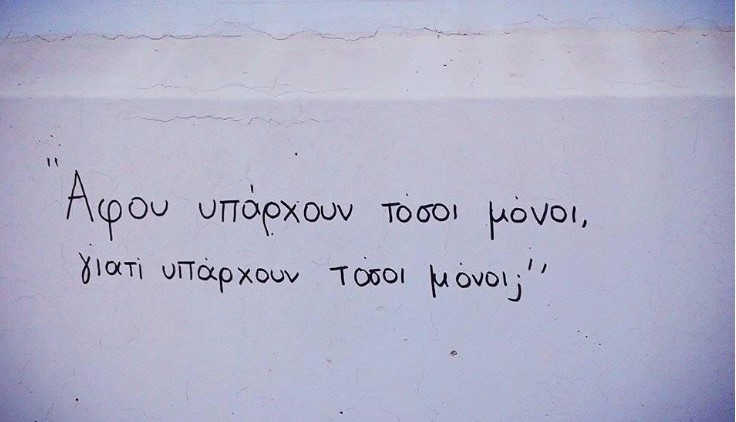 "Αφου υπάρχουν τόσοι μόνοι,
γιατί υπάρχουν τόσοι μόνοι;"